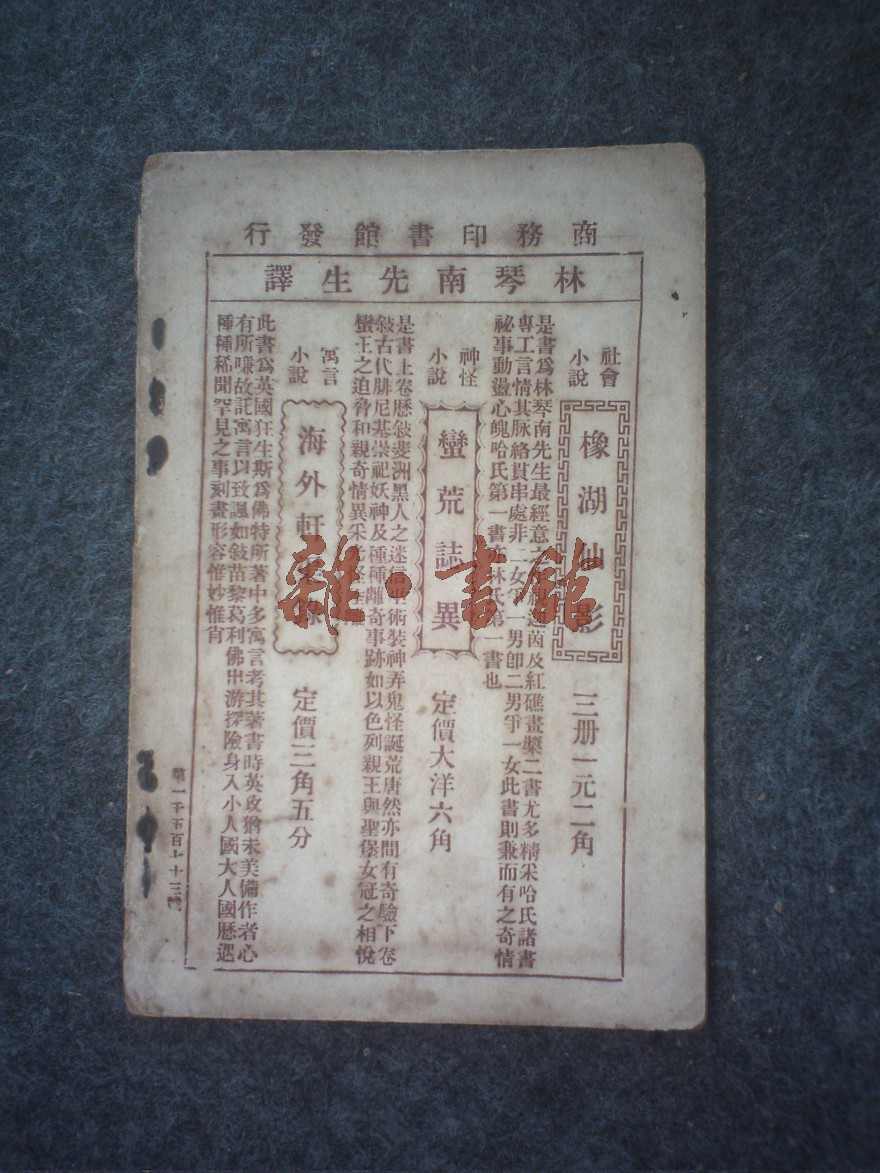 商務印書館發行
林琴南先生譯
社會
小說
橡湖仙影
三册一元二角
是書爲林琴南先生最經意之
茵及紅礁畫槳二書尤多精采哈氏諸書
專工言情其脉絡貫串處非二女爭一男卽二男爭一女此書則兼而有之奇情
祕事動盪心魄哈氏第一書
林氏第一書也
神怪
小說
蠻荒誌異
定價大洋六角
是書上卷歷敍斐洲黑人之迷信
術裝神弄鬼怪誕荒唐然亦間有奇驗下卷
敍古代腓尼基崇祀妖神及種種離奇事跡如以色列親王與聖堡女冠之相悅
蠻王之迫脅和親奇情異采
寓言
小說
海外軒渠錄
定價三角五分
此書爲英國狂生斯爲佛特所著中多寓言考其著書時英政猶未美備作者心
有所嗛故託寓言以致諷如敍苗黎葛利佛出游探險身入小人國大人國歷遇
種種稀聞罕見之事刻畫形容惟妙惟肖
雜·書館